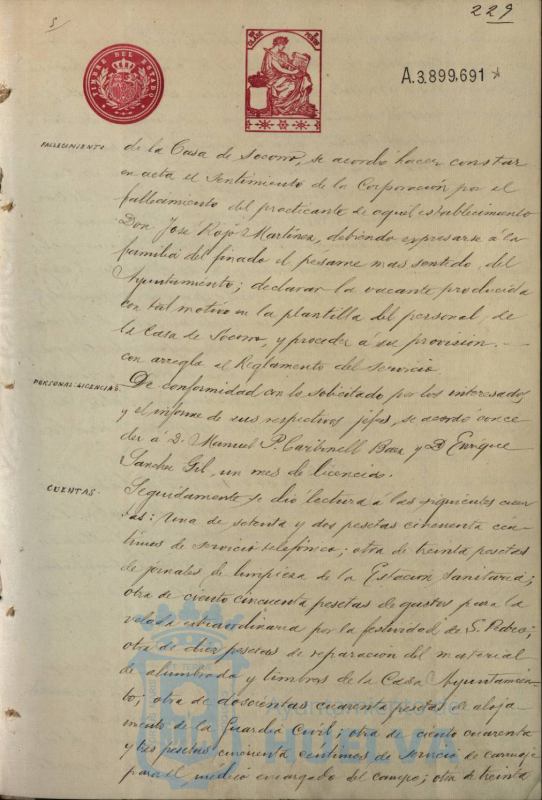 229
5
TIMBRE DEL ESTADO
A.3.899.691
FALLECIMIENTO.
de la Casa de Socorro, se acordó hacer constar
en acta el sentimiento de la Corporación por el
fallecimiento del practicante de aquel establecimiento
Don José Rojo Martínez, debiendo expresarse á la
familia del finado el pésame mas sentido del
Ayuntamiento; declarar la vacante producida
con tal motivo en la plantilla del personal de
la Casa de Socorro, y proceder á su provisión
con arreglo al Reglamento del servicio.
PERSONAL-LICENCIAS.
De conformidad con lo solicitado por los interesados
y el informe de sus respectivos jefes, se acordó conce
der á D. Manuel P. Carbonell Baez y D. Enrique
Sanchez Gil, un mes de licencia.
CUENTAS.
Seguidamente se dió lectura á las siguientes cuen
tas: Una de setenta y dos pesetas cincuenta cen
timos de servicio telefónico; otra de treinta pesetas
de jornales de limpieza de la Estacion Sanitaria;
otra de ciento cincuenta pesetas de gastos para la
velada extraordinaria por la festividad de S. Pedro;
otra de diez pesetas de reparación del material
de alumbrado y timbres de la Casa Ayuntamien
to; otra de doscientas cuarenta pesetas de aloja
miento de la Guardia Civil; otra de ciento cuarenta
y tres pesetas cincuenta céntimos de servicio de carruaje
para el médico encargado del campo; otra de treinta
HUELVA